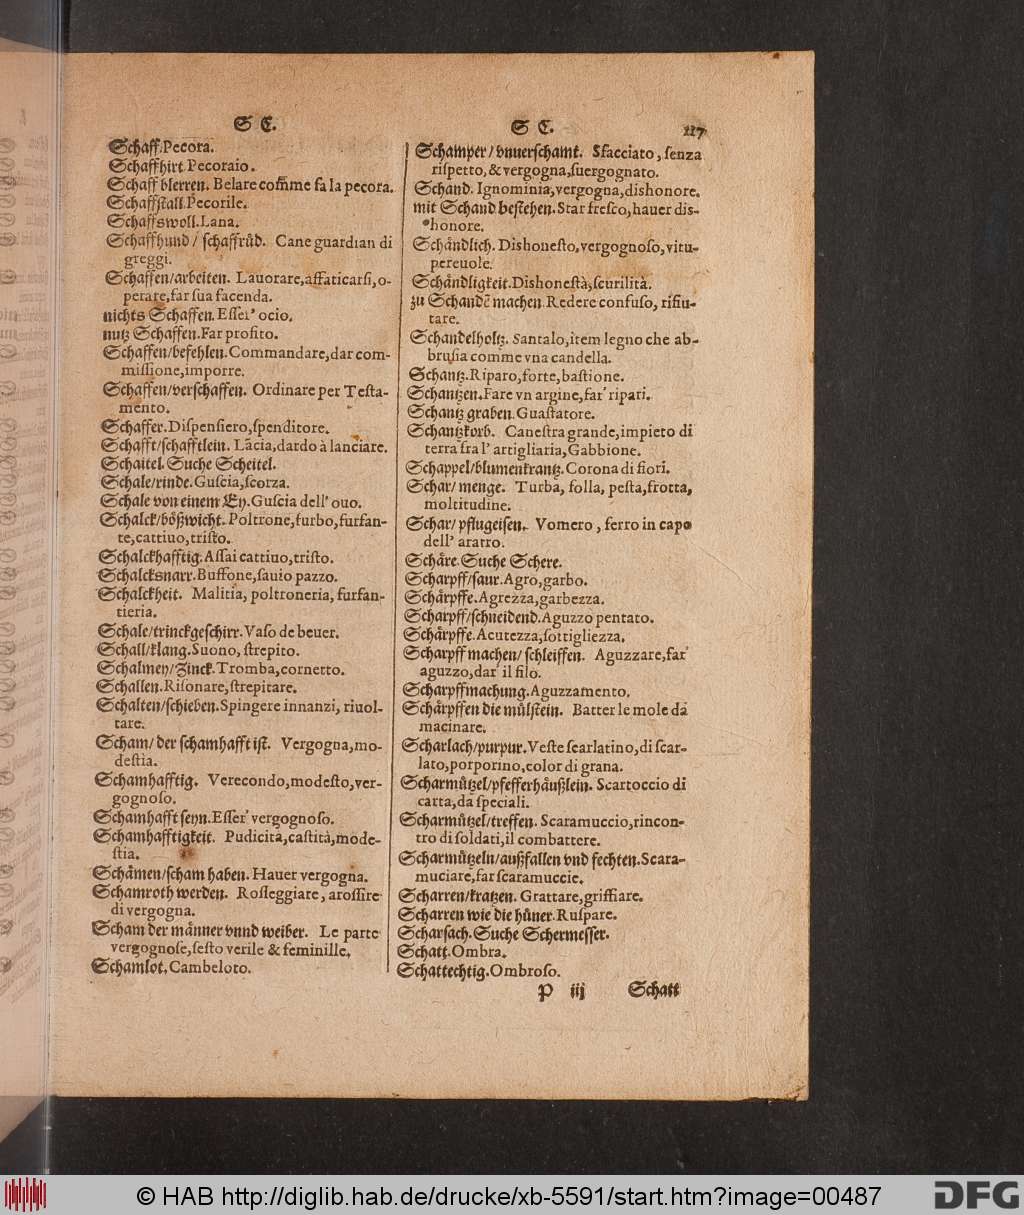 S C.
Schaff. Pecora.
Schaffhirt. Pecoraio.
Schaff blerren. Belare com̃me fa la pecora.
Schaffstall. Pecorile.
Schaffswoll. Lana.
Schaffhund / schaffrůd. Cane guardian di
greggi.
Schaffen/arbeiten. Lauorare,affaticarſi,o-
perare,far ſua facenda.
nichts Schaffen. Eſſer' ocio.
nutz Schaffen. Far profito.
Schaffen/befehlen. Commandare,dar com-
miſſione,imporre.
Schaffen/verschaffen. Ordinare per Teſta-
mento.
Schaffer. Diſpenſiero,ſpenditore.
Schafft/schafftlein. Lãcia,dardo à lanciare.
Schaitel. Suche Scheitel.
Schale/rinde. Guſcia,ſcorza.
Schale von einem Ey. Guſcia dell' ouo.
Schalck/bößwicht. Poltrone,furbo,furfan-
te,cattiuo,triſto.
Schalckhafftig. Aſſai cattiuo,triſto.
Schalcksnarr. Buffone,ſauio pazzo.
Schalckheit. Malitia, poltroneria, furfan-
tieria.
Schale/trinckgeschirr. Vaſo de beuer.
Schall/klang. Suono, ſtrepito.
Schalmey/Zinck. Tromba,cornetto.
Schallen. Riſonare,ſtrepitare.
Schalten/schieben. Spingere innanzi, riuol-
tare.
Scham/ der schamhafft ist. Vergogna,mo-
deſtia.
Schamhafftig. Verecondo,modeſto,ver-
gognoſo.
Schamhafft seyn. Eſſer' vergognoſo.
Schamhafftigkeit. Pudicita,caſtità,mode-
ſtia.
Schämen/scham haben. Hauer vergogna.
Schamroth werden. Roſſeggiare, aroſſire
di vergogna.
Scham der männer vnnd weiber. Le parte
vergognoſe,ſeſto verile & feminille.
Schamlot. Cambeloto.
S C. 117
Schamper/ vnuerschamt. Sfacciato, ſenza
riſpetto,& vergogna,ſuergognato.
Schand. Ignominia,vergogna,dishonore.
mit Schand bestehen. Star freſco,hauer dis-
honore.
Schändlich. Dishoneſto,vergognoſo,vitu-
pereuole.
Schändligkeit. Dishoneſtà,ſcurilità.
zu Schandẽ machen. Redere confuſo, rifiu-
tare.
Schandelholtz. Santalo,item legno che ab-
bruſia comme vna candella.
Schantz. Riparo,forte,baſtione.
Schantzen. Fare vn argine,far' ripari.
Schantz graben. Guaſtatore.
Schantzkorb. Caneſtra grande,impieto di
terra fra l' artigliaria,Gabbione.
Schappel/blumenkrantz. Corona di fiori.
Schar/ menge. Turba, folla, peſta,frotta,
moltitudine.
Schar/ pflugeisen. Vomero, ferro in capo
dell' aratro.
Schäre. Suche Schere.
Scharpff/saur. Agro,garbo.
Schärpffe. Agrezza,garbezza.
Scharpff/schneidend. Aguzzo pentato.
Schärpffe. Acutezza,ſottigliezza.
Scharpff machen/ schleiffen. Aguzzare,far'
aguzzo,dar' il filo.
Scharpffmachung. Aguzzamento.
Schärpffen die mülstein. Batter le mole da
macinare.
Scharlach/purpur. Veſte ſcarlatino,di ſcar-
lato,porporino,color di grana.
Scharmützel/pfefferhäußlein. Scartoccio di
carta,da ſpeciali.
Scharmützel/treffen. Scaramuccio,rincon-
tro di ſoldati,il combattere.
Scharmützeln/außfallen vnd fechten. Scara-
muciare,far ſcaramuccie.
Scharren/kratzen. Grattare,griffiare.
Scharren wie die hüner. Ruſpare.
Scharsach. Suche Schermesser.
Schatt. Ombra.
Schattechtig. Ombroſo.
P iij Schatt
© HAB http://diglib.hab.de/drucke/xb-5591/start.htm?image=00487
DFG